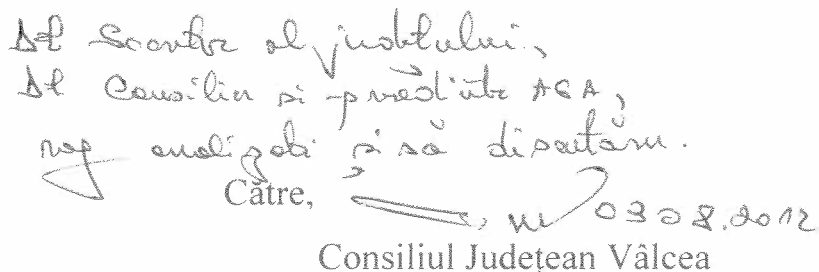 Dl Secretar al județului,
Dl Consilier și președinte AGA,
rog analizați și să discutăm.
Către,
03 08.2012
Consiliul Județean Vâlcea